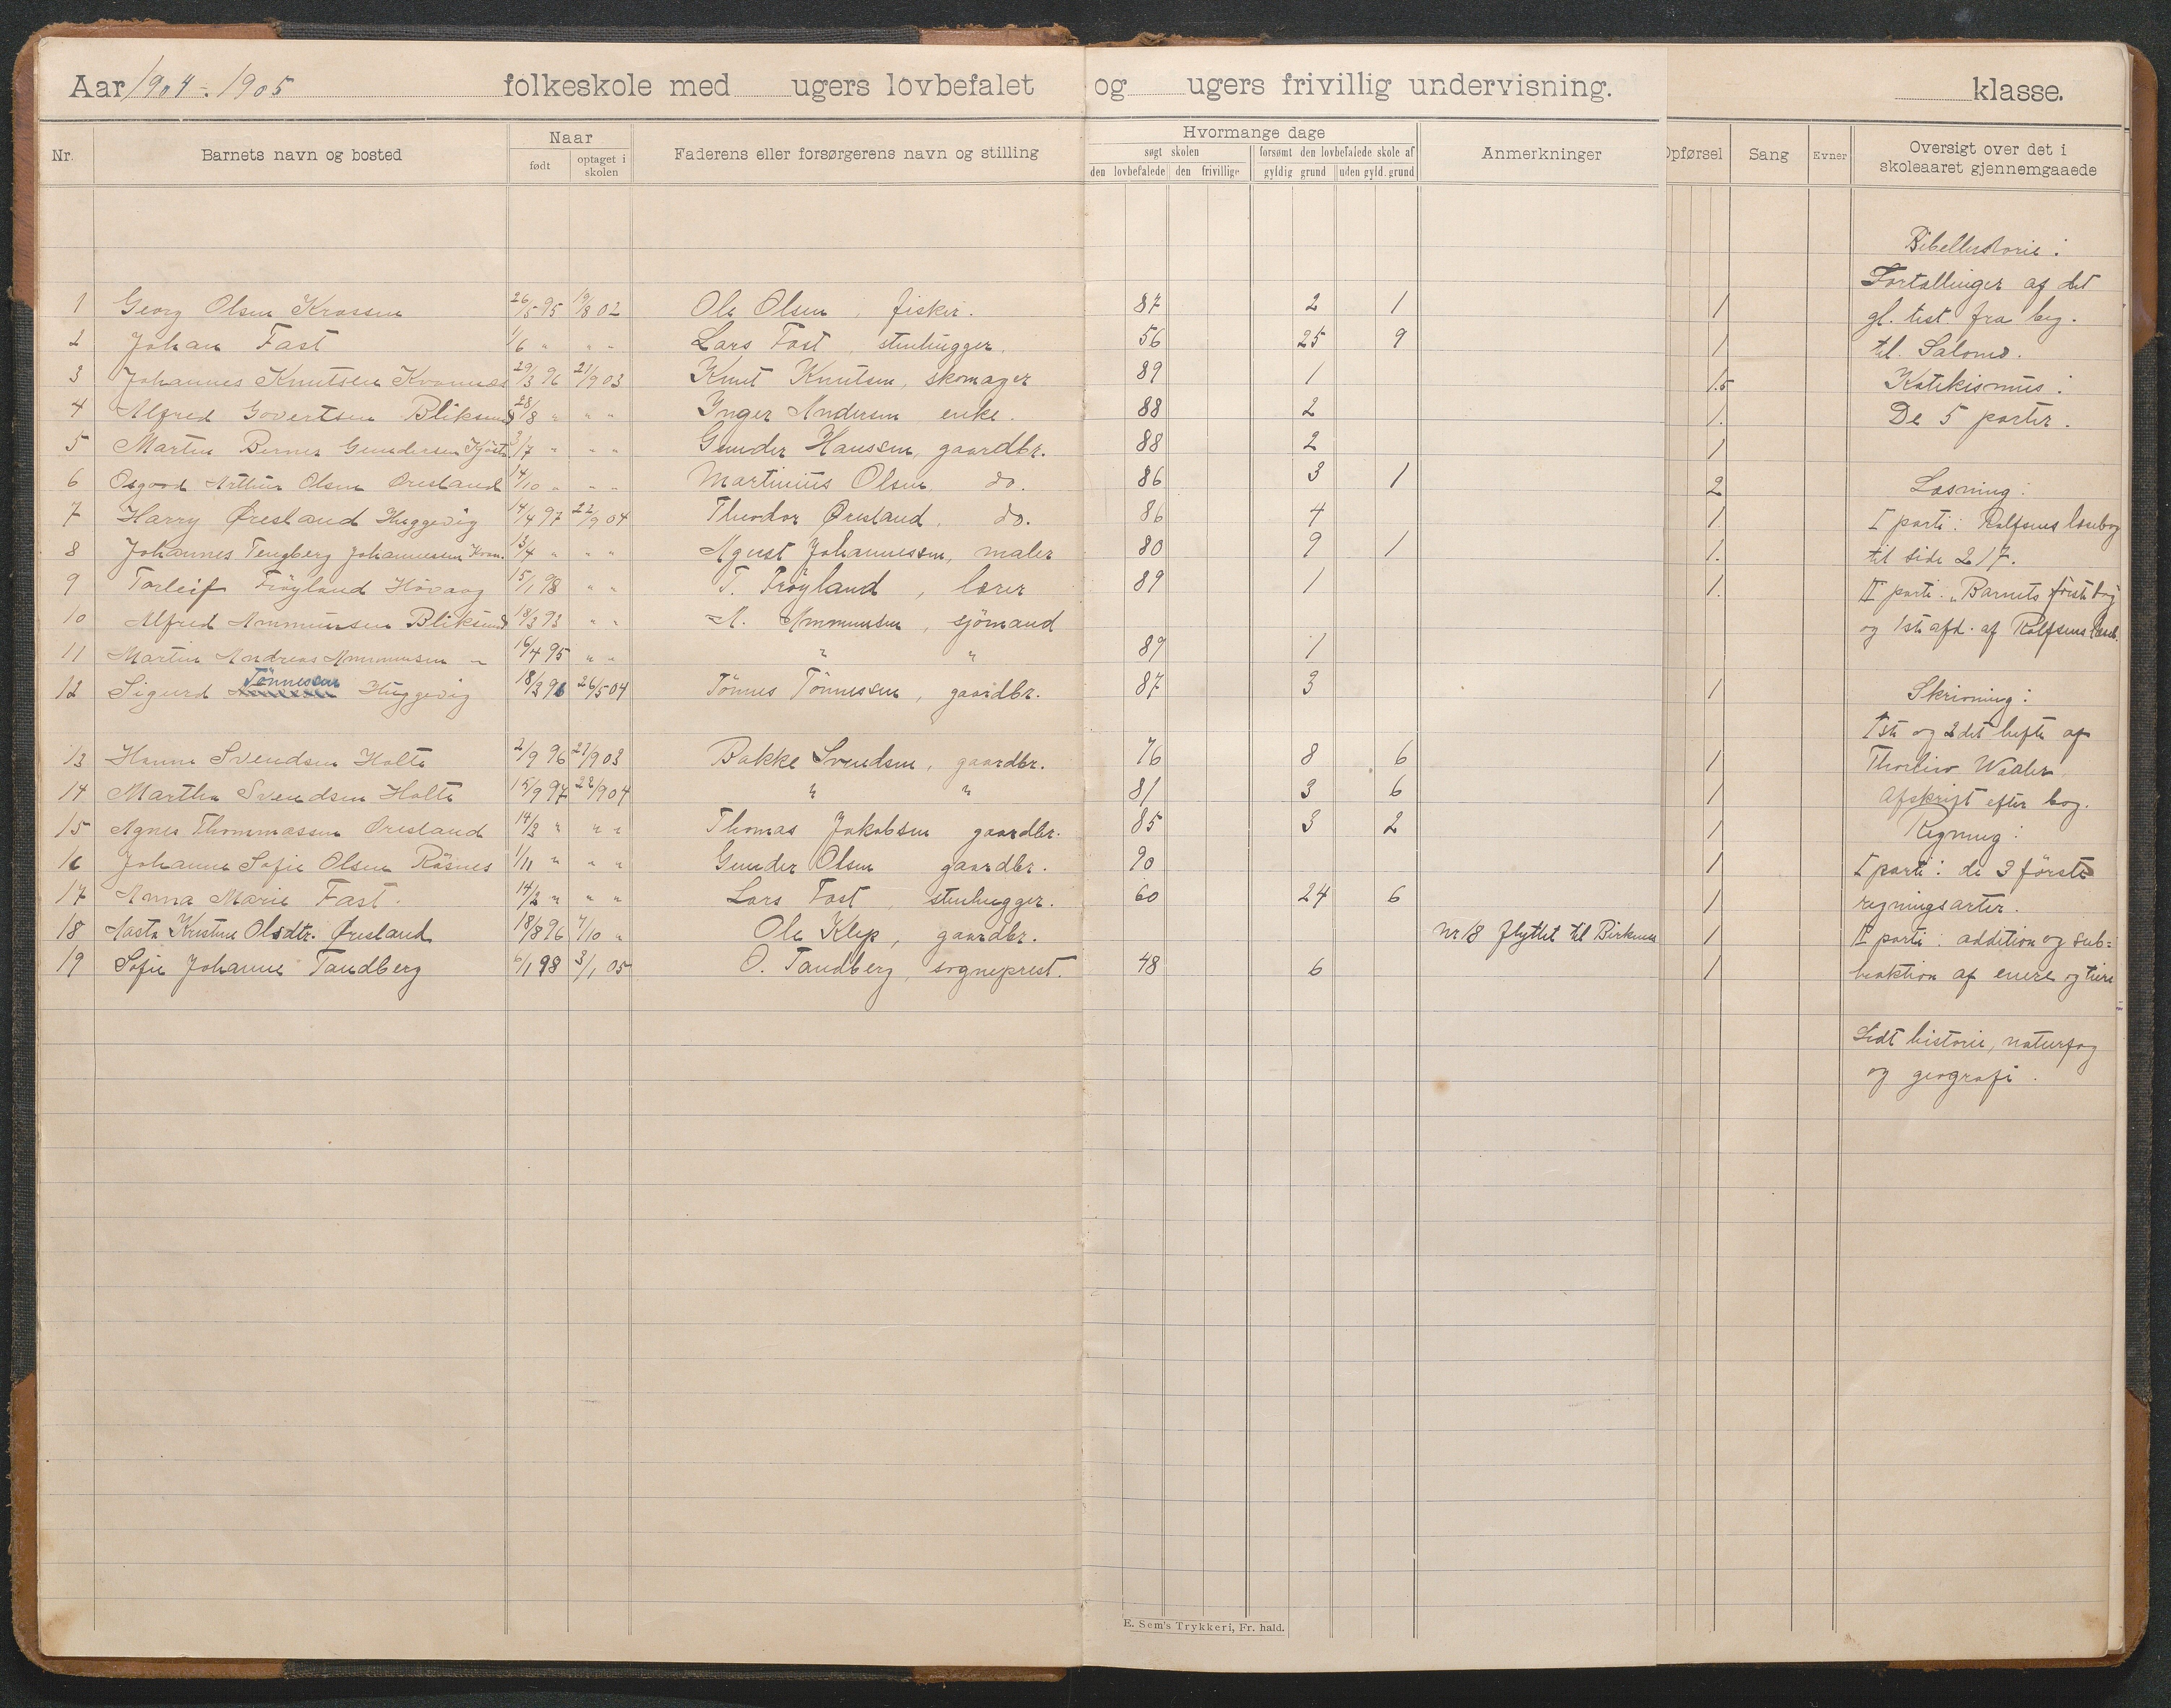 Aar 1904-1905 folkeskole med ugers lovbefalet og ugers frivillig undervisning. klasse.
Nr. Barnets navn og bosted Naar født optaget i skolen Faderens eller forsørgerens navn og stilling Hvormange dage søgt skolen den lovbefalede den frivillige forsømt den lovbefalede skole af gyldig grund uden gyld. grund Anmerkninger Opførsel Sang Evner Oversigt over det i skoleaaret gjennemgaaede
Bibelhistorie:
Fortællinger af det
1 Georg Olsen Krossen 26/5 95 19/8 02 Ole Olsen, fisker. 87 2 1 1 gl. test. fra beg.
2 Johan Fast 1/6 " " " Lars Fast, stenhugger. 56 25 9 1 til Salomo.
3 Johannes Knutsen Kvannes 29/3 96 21/9 03 Knut Knutsen, skomager 89 1 1.5 Katekismus:
4 Alfred Govertsen Bliksund 28/8 " " " Inger Andersen enke. 88 2 1. De 5 parter.
5 Martin Berner Gundersen 3/7 " " " Gunder Hanssen, gaardbr. 88 2 1
6 Osgood Arthur Olsen Øresland 14/10 " " " Martinius Olsen, do. 86 3 1 2 Læsning:
7 Harry Øresland Huggevig 14/4 97 22/9 04 Theodor Øresland, do. 86 4 1. I parti: Rolfsens læsebog
8 Johannes Tengberg Johannessen Kvan. 13/4 " " " Agust Johannessen, maler 80 9 1 1. til side 217.
9 Torleif Frøyland Høvaag 15/1 98 " " T. Frøyland, lærer 89 1 1. II parti. "Barnets første bog
10 Alfred Ammunsen Bliksund 18/3 93 " " A. Ammunsen, sjömand og 1ste afd. af Rolfsens læseb.
11 Martin Andreas Ammunsen " 16/4 95 " " " " 89 1
12 Sigurd Tönnessen Huggevig 18/3 96 26/5 04 Tönnes Tönnessen, gaardbr. 87 3 1 Skrivning:
1ste og 2det hefte af
13 Hanna Svendsen Holte 2/9 96 21/9 03 Bakke Svendsen, gaardbr. 76 8 6 1 Waaler.
14 Martha Svendsen Holte 15/9 97 22/9 04 " " 81 3 6 1 Afskrift efter bog.
15 Agnes Thommassen Øresland 14/3 " " " Thomas Jakobsen gaardbr. 85 3 2 1 Regning:
16 Johanne Sofie Olsen Røsnes 1/11 " " " Gunder Olsen gaardbr. 90 1 I parti: de 3 förste
17 Anna Marie Fast. 14/2 " " " Lars Fast, stenhugger. 60 24 6 1 regningsarter.
18 Aasta Kristine Olsdtr. Øresland 18/8 96 7/10 " Ole Klep, gaardbr. Nr 18 flyttet til Birkenes 1 II parti: addition og sub=
19 Sofie Johanne Tandberg 6/1 98 3/1 05 O. Tandberg, sogneprest. 48 6 1 traktion af enere og tiere
Lidt historie, naturfag
og geografi.
E. Sem's Trykkeri, Fr. hald.